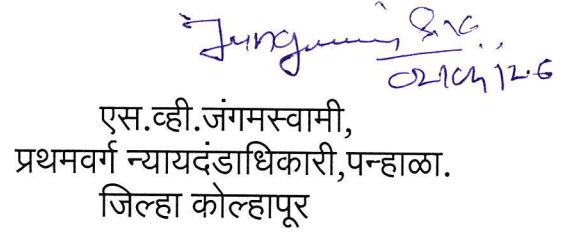 एस.व्ही.जंगमस्वामी,
प्रथमवर्ग न्यायदंडाधिकारी,पन्हाळा.
जिल्हा कोल्हापूर